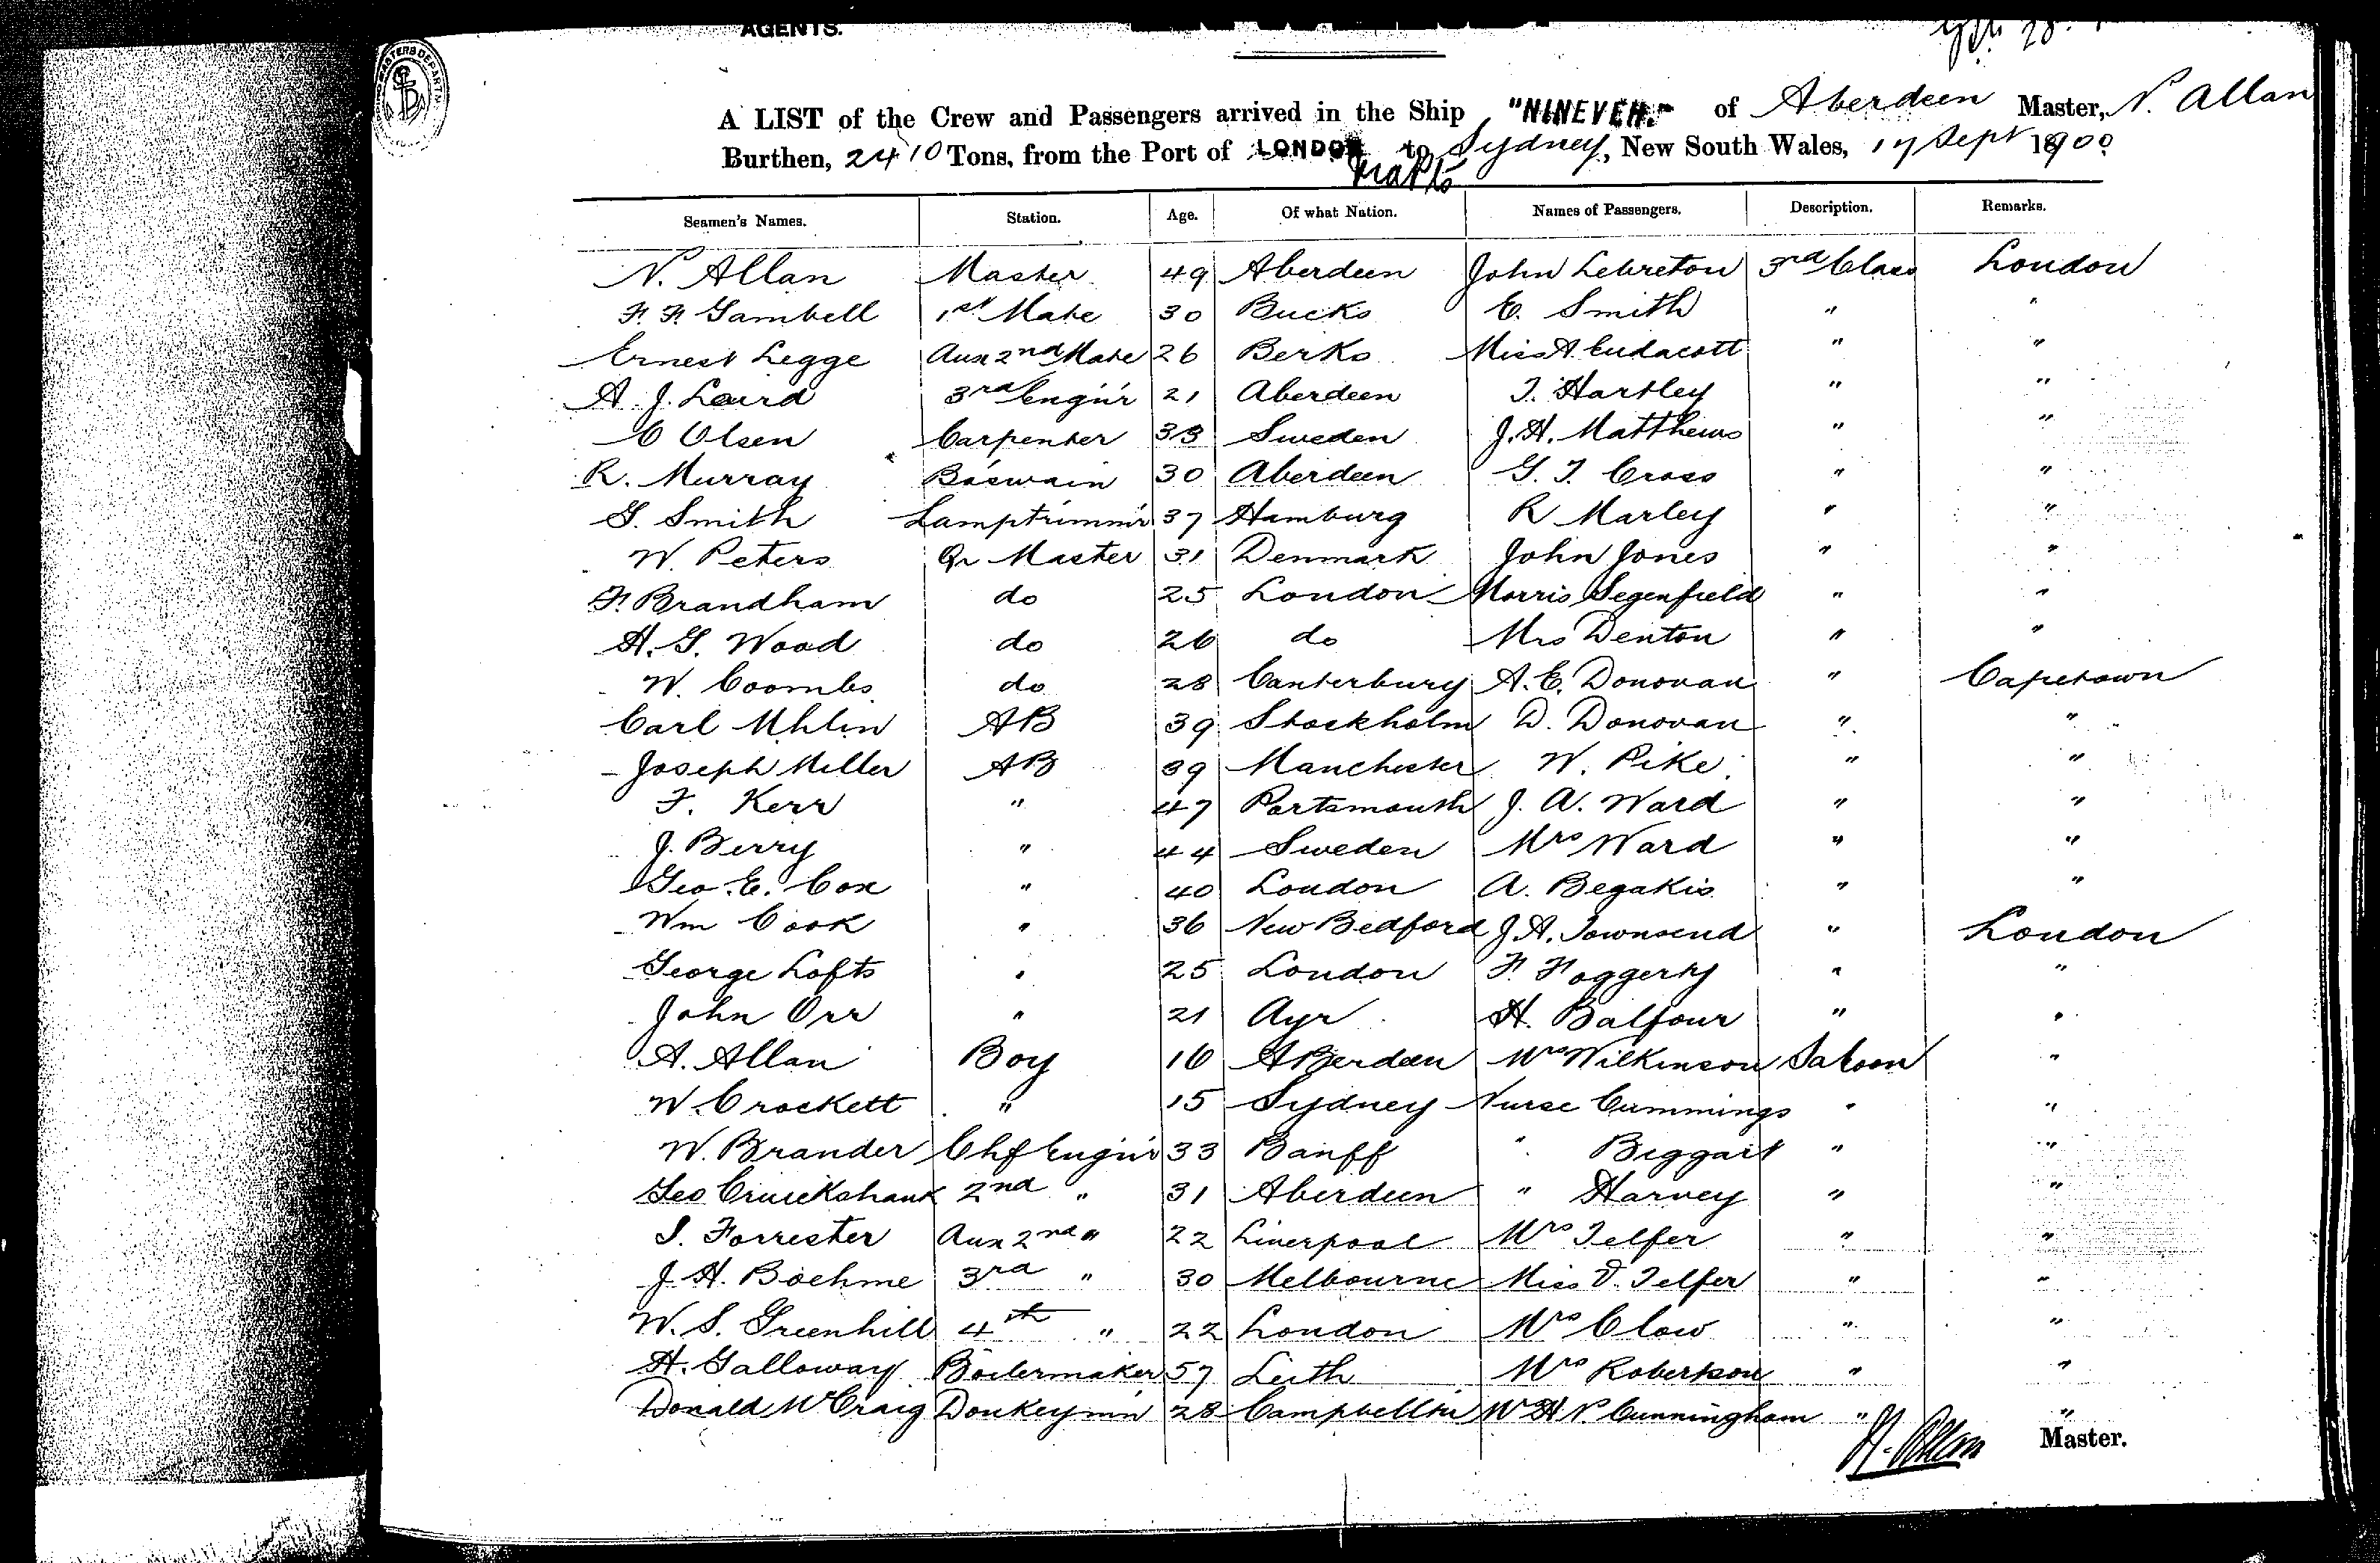 AGENTS.
A LIST of the Crew and Passengers arrived in the Ship "NINEVEH." of Aberdeen Master, N. Allan
Burthen, 2410 Tons, from the Port of LONDON to Sydney, New South Wales, 17 Sept 1900
Seamen's Names. Station. Age. Of what Nation. Names of Passengers. Description. Remarks.
N. Allan Master 49 Aberdeen John Lebreton 3rd Class London
F. F. Gambell 1st Mate 30 Bucks E. Smith " "
Ernest Legge Aux 2nd Mate 26 Berks Miss A. Endacott " "
A. J. Laird 3rd Engin'r 21 Aberdeen T. Hartley " "
C Olsen Carpenter 33 Sweden J. H. Matthews " "
R. Murray Boswain 30 Aberdeen G. T. Cross " "
G. Smith Lamptrimm'r 37 Hamburg R Marley " "
W. Peters Qr Master 31 Denmark John Jones " "
F. Brandham do 25 London Morris Segenfield " "
H. G. Wood do 26 do Mrs Denton " "
W. Coombs do 28 Canterbury A. E. Donovan " Capetown
Carl Uhlin AB 39 Stockholm D. Donovan " "
Joseph Miller AB 39 Manchester W. Pike " "
F. Kerr " 47 Portsmouth J. A. Ward " "
J. Berry " 44 Sweden Mrs Ward " "
Geo. E. Cox " 40 London A. Begakis " "
Wm Cook " 36 New Bedford J. A. Townsend " London
George Lofts " 25 London F. Foggerty " "
John Orr " 21 Ayr H. Balfour " "
A. Allan Boy 16 Aberdeen Mrs Wilkinson Saloon "
W. Crockett " 15 Sydney Nurse Cummings " "
W. Brander Chf Engin'r 33 Banff " Beggart " "
Geo Cruickshank 2nd " 31 Aberdeen " Harvey " "
S. Forrester Aux 2nd " 22 Liverpool Mrs Telfer " "
J. H. Boehme 3rd " 30 Melbourne Miss D. Telfer " "
W. S. Greenhill 4th " 22 London Mrs Clow " "
H. Galloway Boilermaker 57 Leith Mrs Robertson " "
Donald McCraig Donkeym'n 28 Mr H N. Cunningham " "
N. Allan Master.